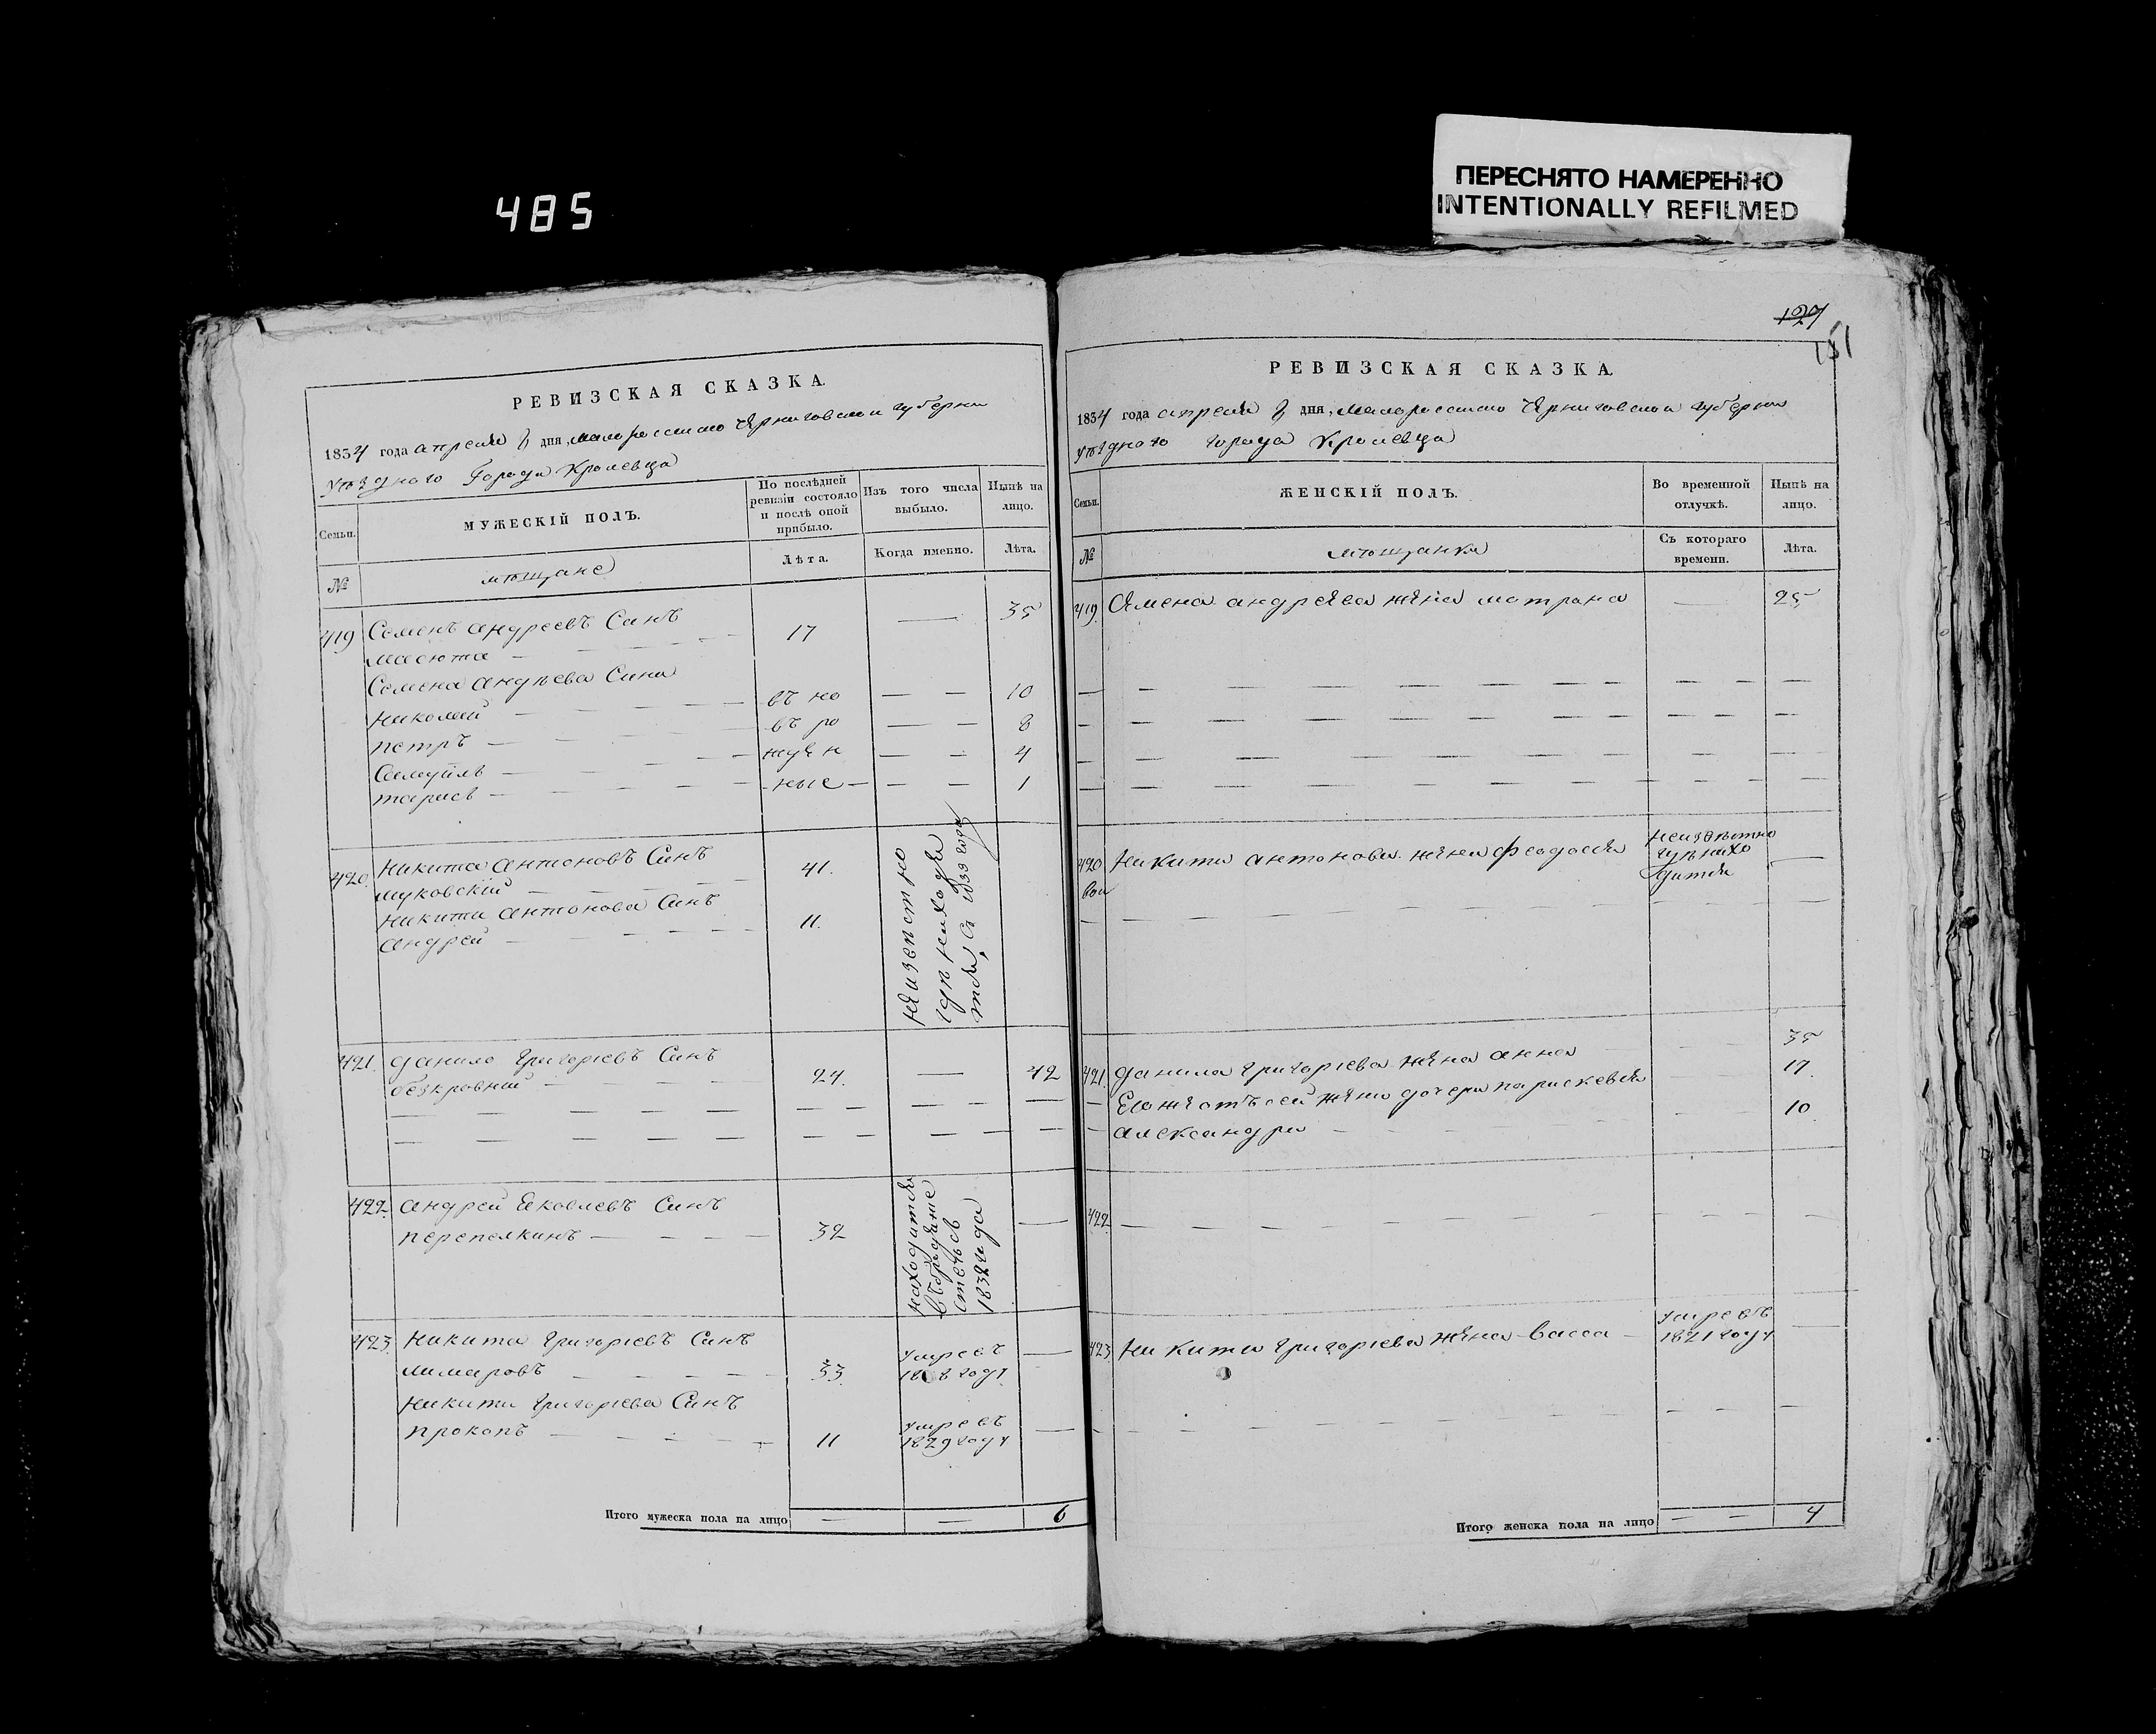 485
ПЕРЕСНЯТО НАМЕРЕННО
INTENTIONALLY REFILMED
РЕВИЗСКАЯ СКАЗКА.
1834 года апреля дня, Малороссийско Черниговской губерни
уѣзднаго Города Кролевца
Семьи.
МУЖЕСКІЙ ПОЛЪ.
По послѣдней
ревизіи состояло
и послѣ оной
прибыло.
Изъ того числа
выбыло.
Нынѣ на
лицо.
№
мѣщане
Лѣта.
Когда именно.
Лѣта.
419 Семенъ андреевъ Синъ
17 — 35
Семена андрѣева Сини
Николай — въ но — — 10
петръ — въ ро — — 8
Самуйлъ — жде н — — 4
тарасъ — ные — — — 1
420. Никита антоновъ Синъ
41.
Никити антонова Синъ
андрей — 11.
неизвестно
гдѣ находи
тся, съ 1833 года
421. данило григоріевъ Синъ
безкровний — 24. — 42
422. андрей Яковлевъ Синъ
перепелкинъ — 32
находится
въ бродяже
стве съ
1832 года
423. Никита григоріевъ Синъ
33. умреъ
году
Никити григоріева Синъ
прокопъ — 11 умреъ
1829 году
Итого мужеска пола на лицо — — 6
127
151
РЕВИЗСКАЯ СКАЗКА.
1834 года апреля дня, Малороссийско Черниговской губерни
уѣзднаго города Кролевца
Семьи.
ЖЕНСКІЙ ПОЛЪ.
Во временной
отлучкѣ.
Нынѣ на
лицо.
№
мѣщанки
Съ котораго
времени.
Лѣта.
419. Семена андреева жена матрона — 25
420 Никити антонова жена феодосия
неизвѣстно
гдѣ нахо
дится
421. данила григоріева жена анна 35
Его же отъ сей жени дочери параскевия 17.
александра 10
422
423. Никити григоріева жена васса — умреъ
1821 году
Итого женска пола на лицо — — 4